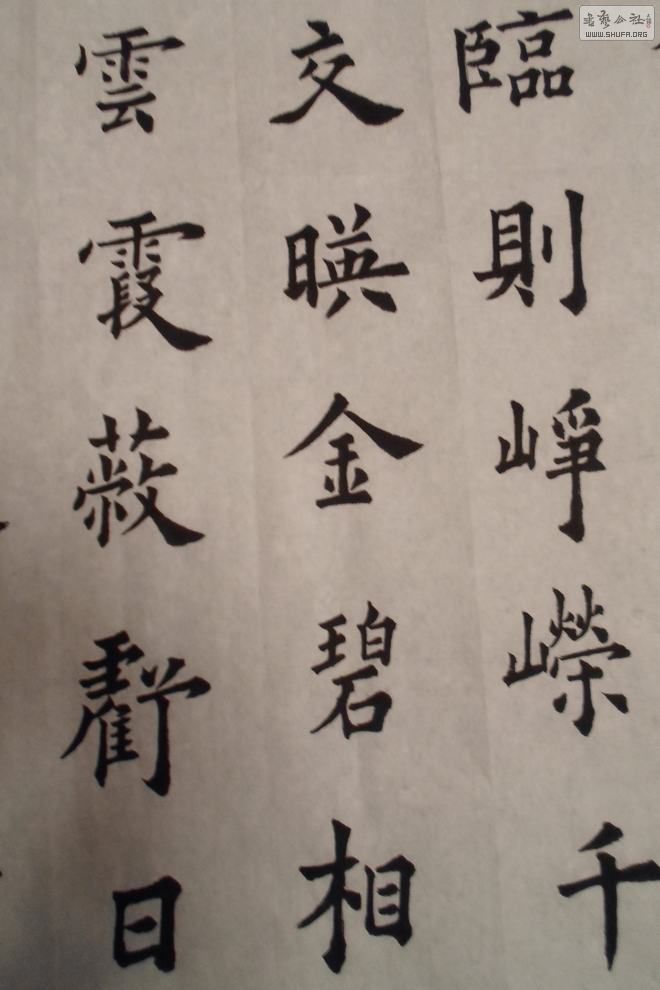 臨則崢嶸千
交暎金碧相
雲霞蔽虧日
書藝公社
WWW.SHUFA.ORG